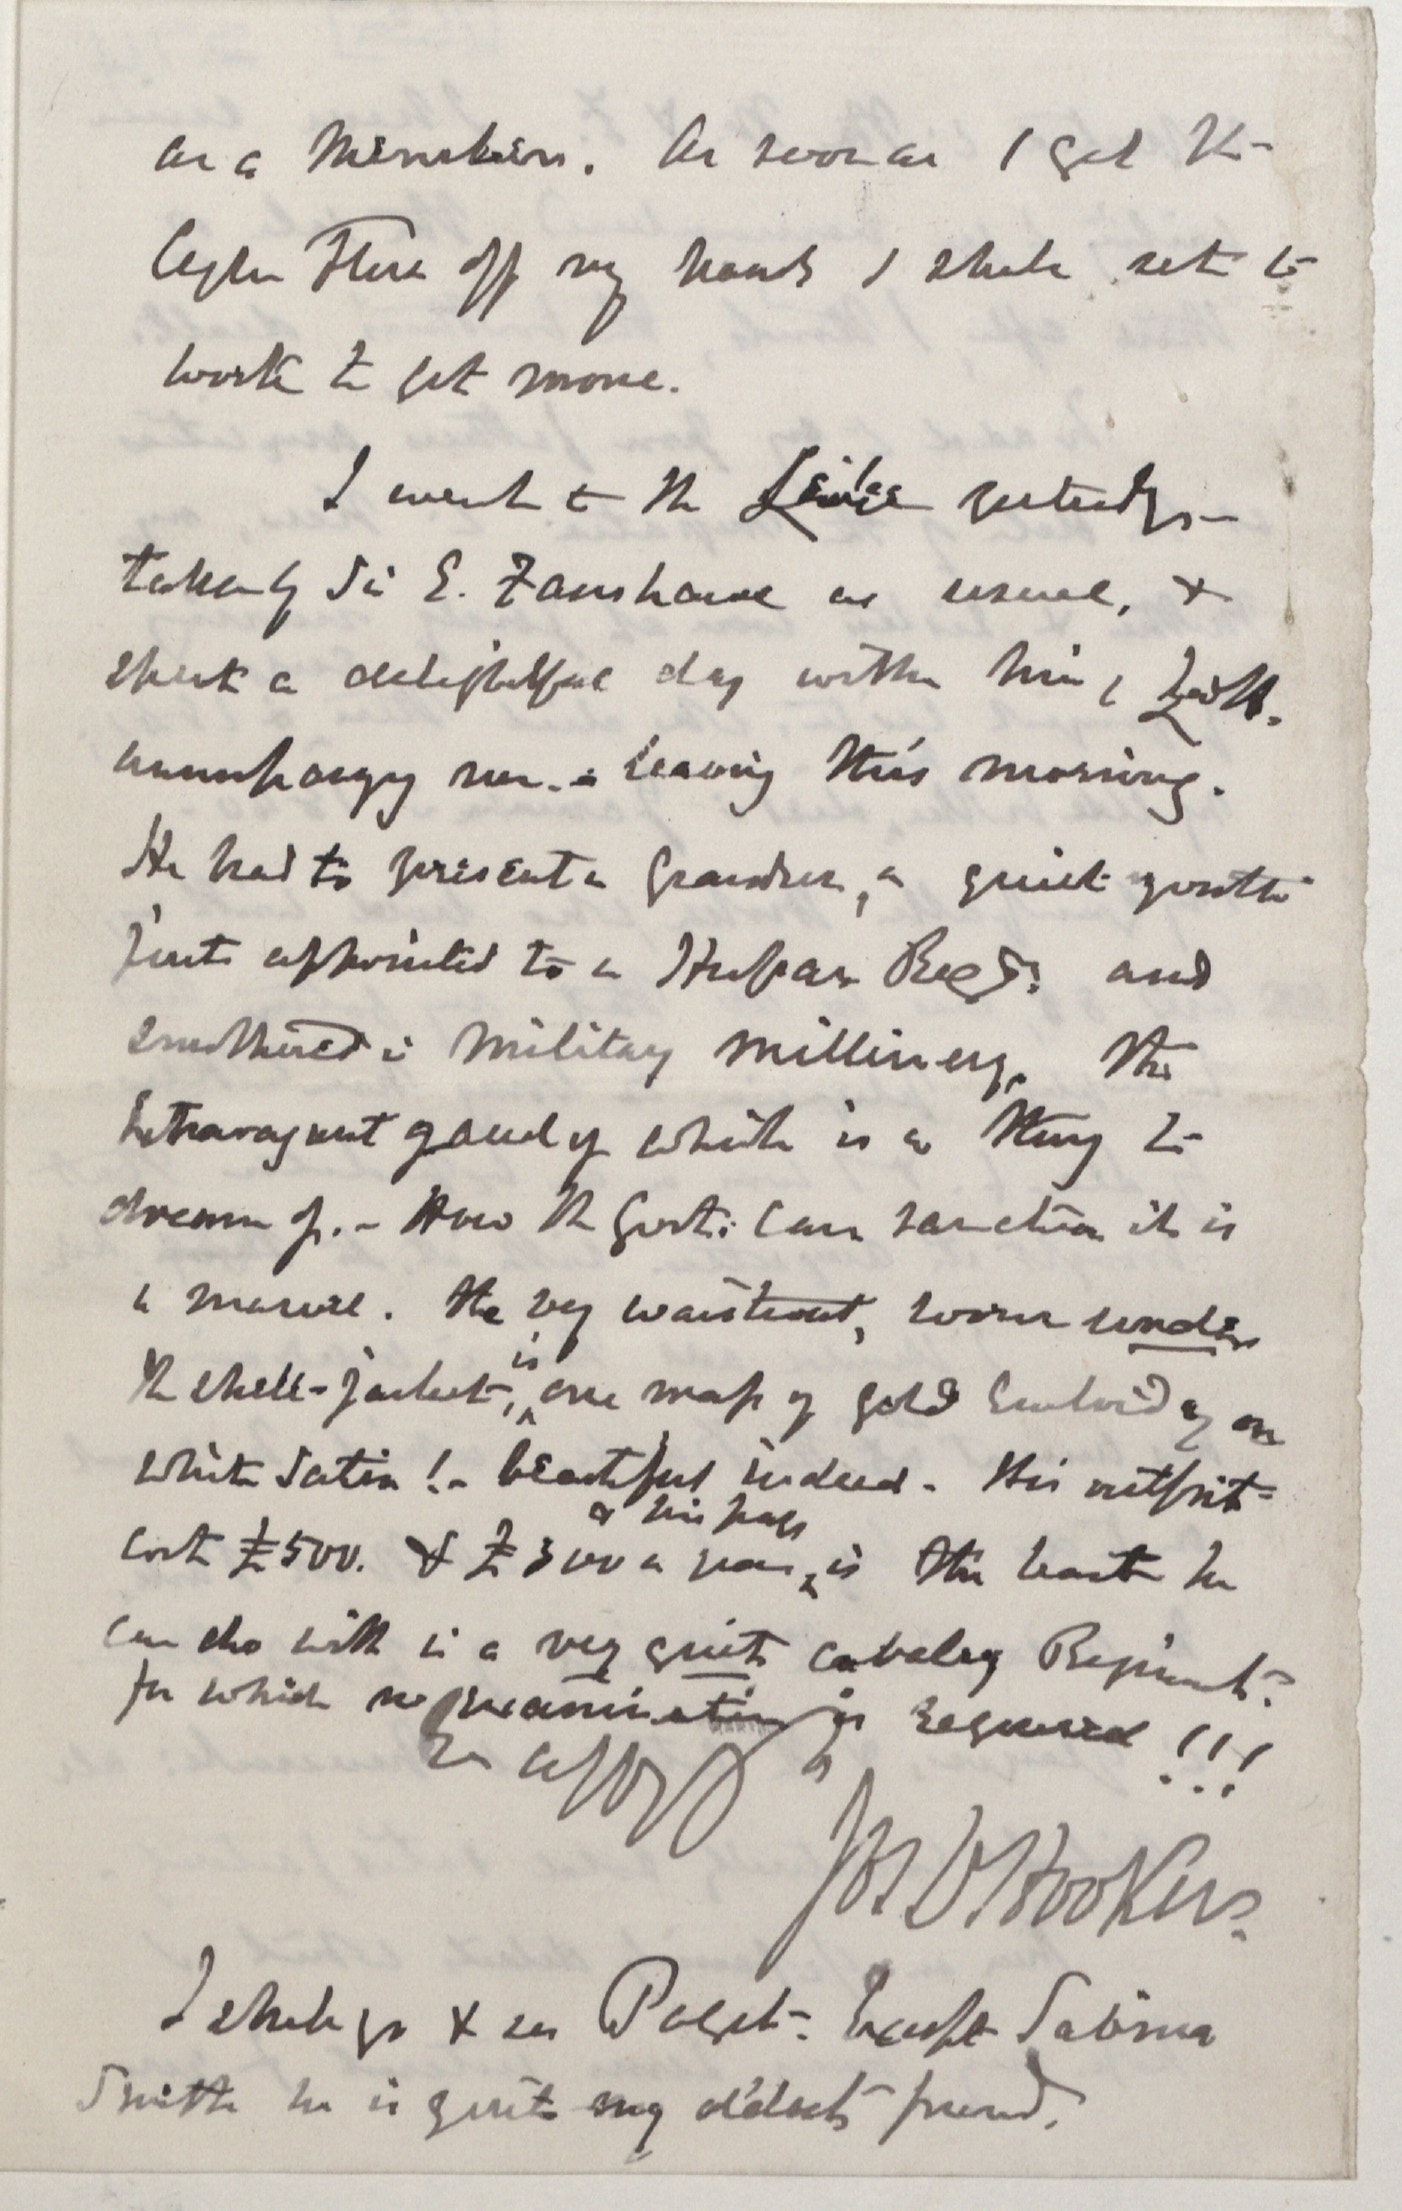 as a Member. As soon as I get the
Ceylon Flora off my hands I shall set to
work to get more.
I went to the Levée yesterday —
taken by Sir E. Fanshawe as usual, &
spent a delightful day with him, Lady F.
accompanying me. — leaving this morning.
He had to present a Grandson, a quiet youth
just appointed to a Hussar Regt: and
smothered in military millinery, the
extravagant gaudy which is a thing to
dream of. — How the Govt: can sanction it is
a marvel. The very waistcoat, worn under
the shell-jacket, is one mass of gold embroidy on
white satin! — beautiful indeed. His outfit
cost £500. & £300 a year & his pay is the least he
can do with in a very quiet cavalry Regiment —
for which no examination is required!!!
Ev affy
Jos D Hooker.
I shall go & see Paget. Except Sabina
Smith he is quite my oldest friend.